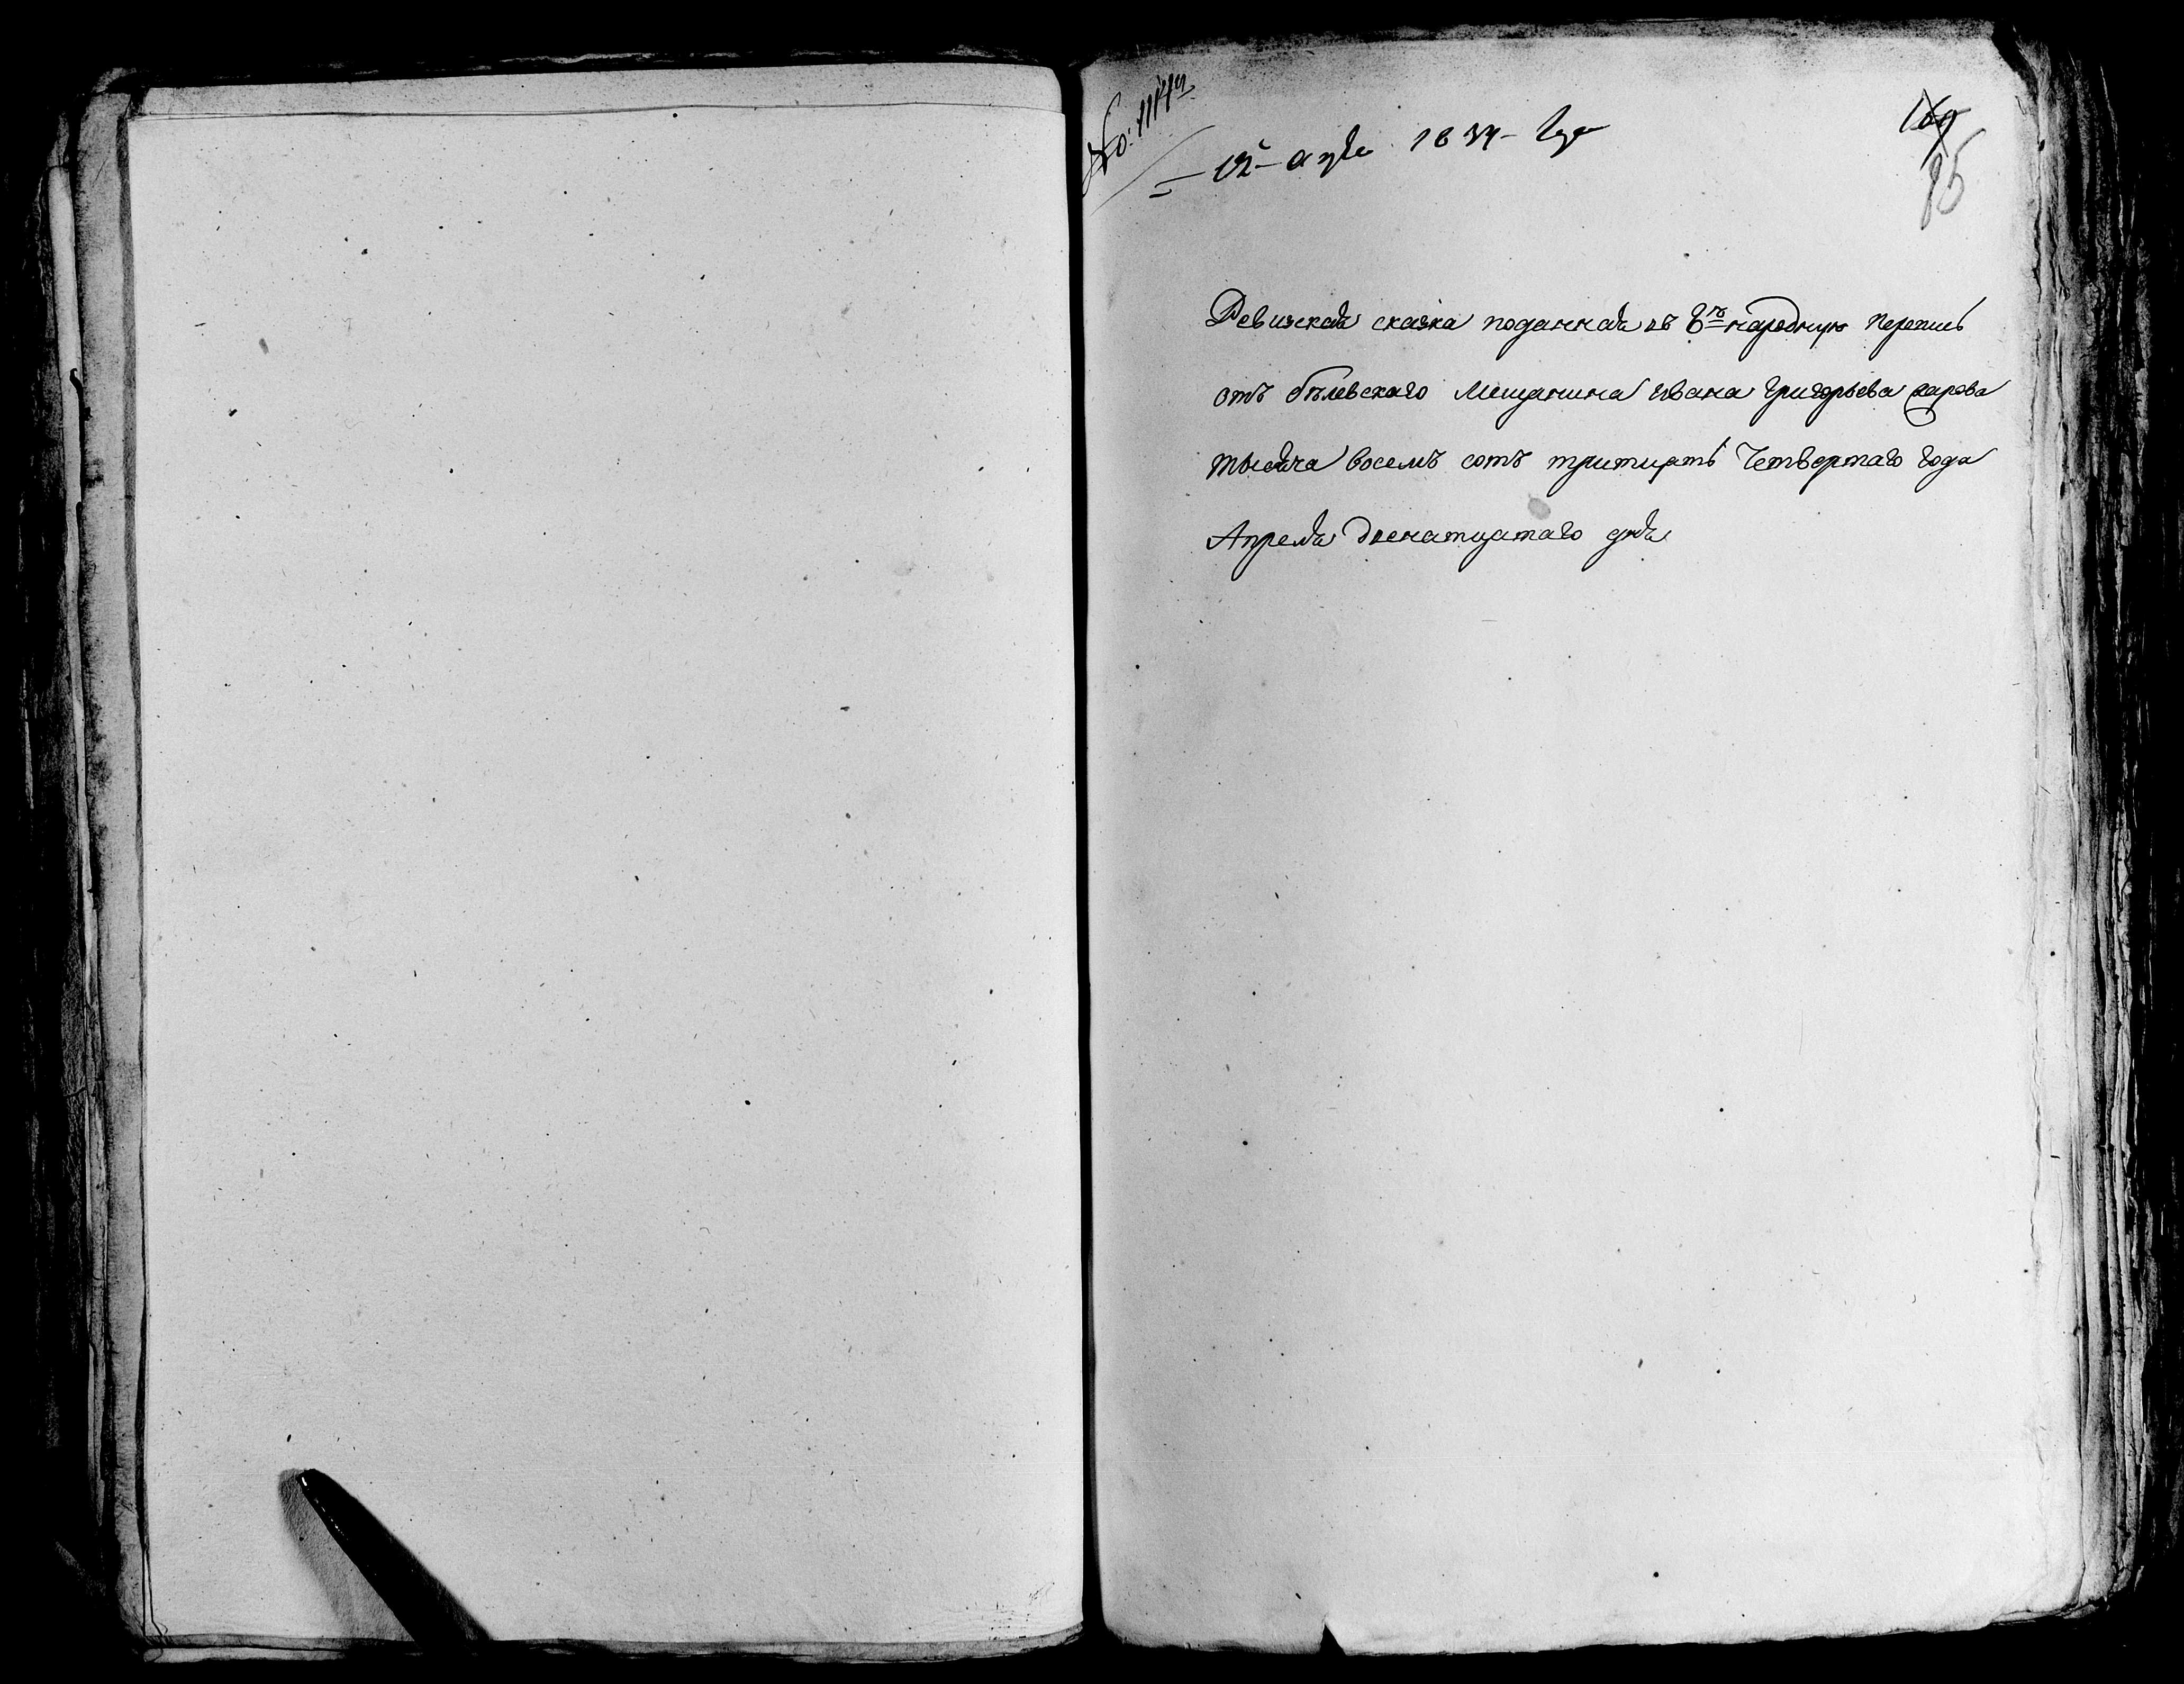 12 апрѣля 1834 Года
169
85
Ревизская сказка поданная въ 8ю народную Перепись
отъ бѣлевскаго Мещанина Ивана Григорьева
тысяча восемъ сотъ тритцать Четвертаго года
Апреля двенатцатаго дня